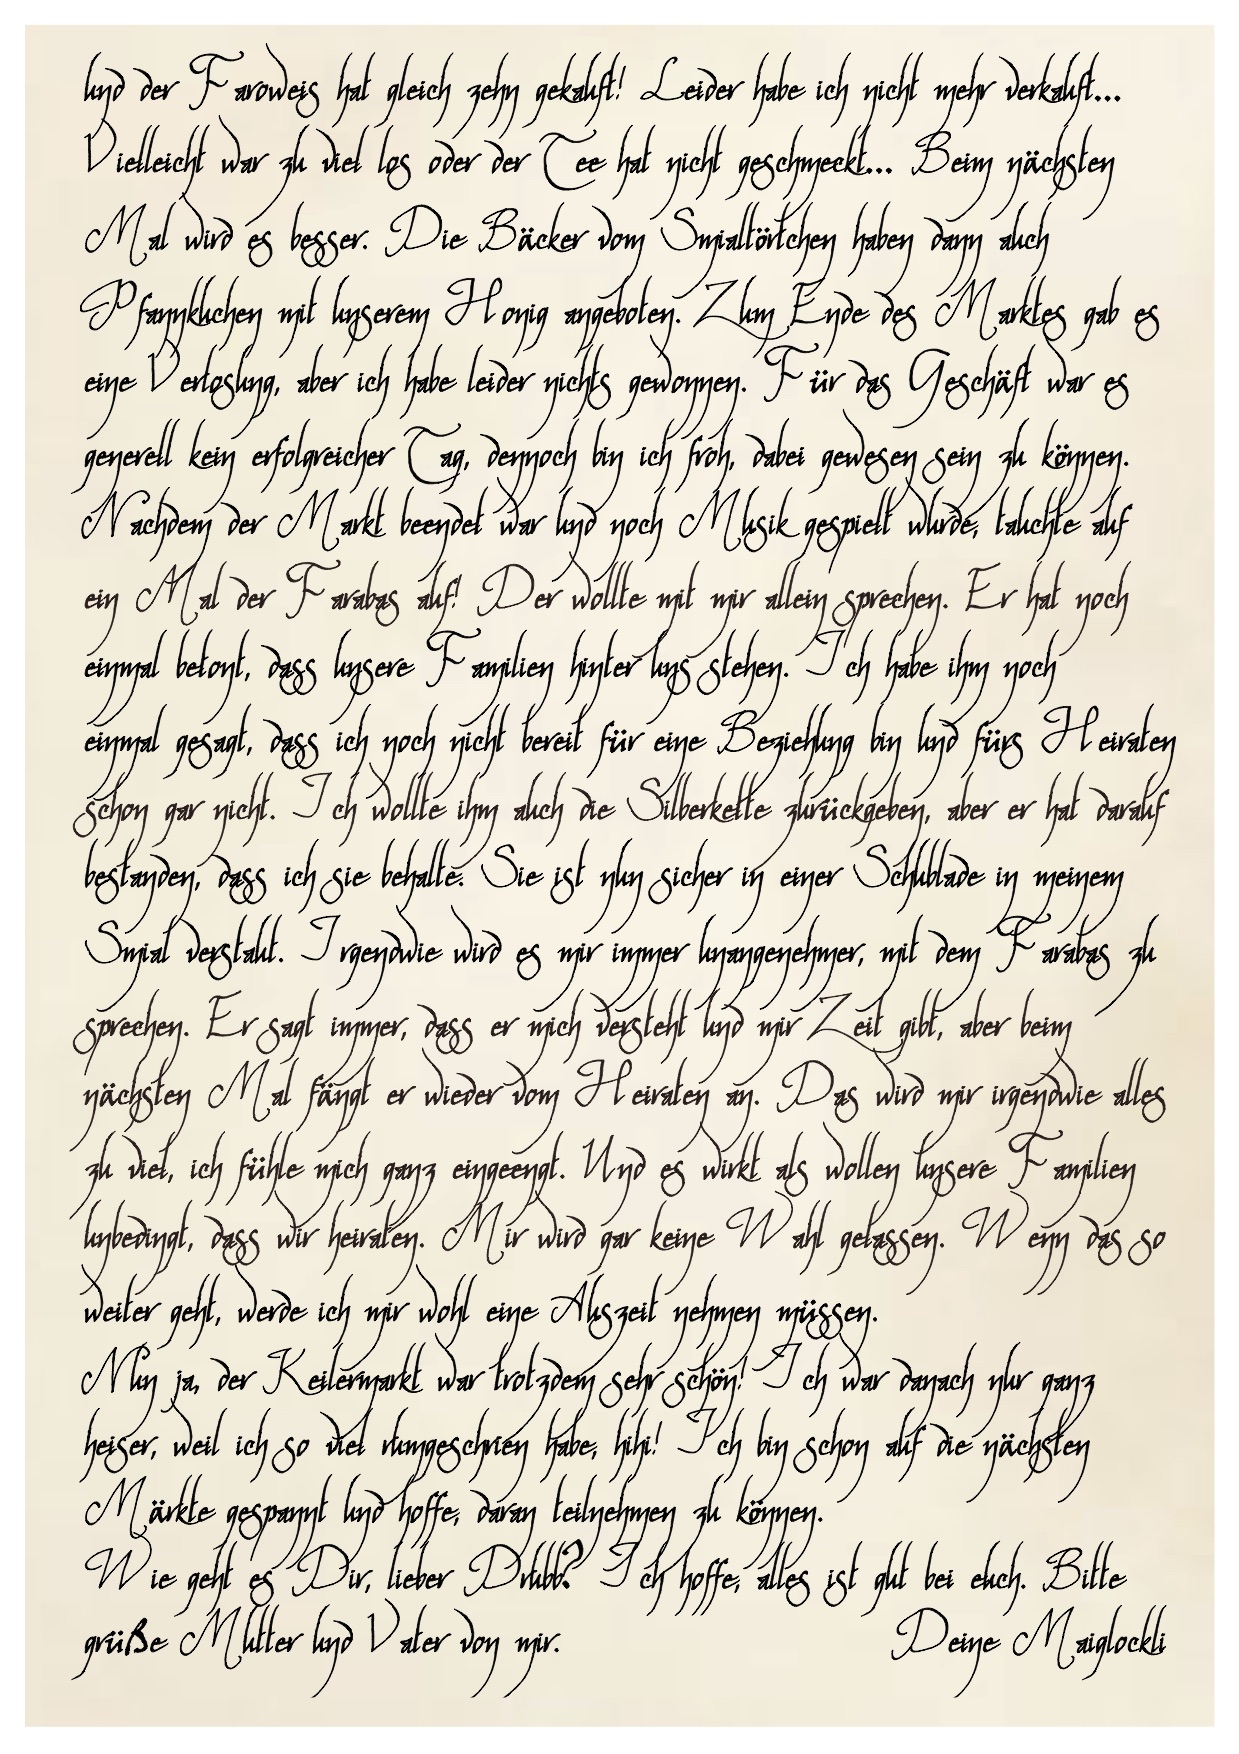 und der Faroweis hat gleich zehn gekauft! Leider habe ich nicht mehr verkauft...
Vielleicht war zu viel los oder der Tee hat nicht geschmeckt... Beim nächsten
Mal wird es besser. Die Bäcker vom Smialtörtchen haben dann auch
Pfannkuchen mit unserem Honig angeboten. Zum Ende des Marktes gab es
eine Verlosung, aber ich habe leider nichts gewonnen. Für das Geschäft war es
generell kein erfolgreicher Tag, dennoch bin ich froh, dabei gewesen sein zu können.
Nachdem der Markt beendet war und noch Musik gespielt wurde, tauchte auf
ein Mal der Farabas auf! Der wollte mit mir allein sprechen. Er hat noch
einmal betont, dass unsere Familien hinter uns stehen. Ich habe ihm noch
einmal gesagt, dass ich noch nicht bereit für eine Beziehung bin und fürs Heiraten
schon gar nicht. Ich wollte ihm auch die Silberkette zurückgeben, aber er hat darauf
bestanden, dass ich sie behalte. Sie ist nun sicher in einer Schublade in meinem
Smial verstaut. Irgendwie wird es mir immer unangenehmer, mit dem Farabas zu
sprechen. Er sagt immer, dass er mich versteht und mir Zeit gibt, aber beim
nächsten Mal fängt er wieder vom Heiraten an. Das wird mir irgendwie alles
zu viel, ich fühle mich ganz eingeengt. Und es wirkt als wollen unsere Familien
unbedingt, dass wir heiraten. Mir wird gar keine Wahl gelassen. Wenn das so
weiter geht, werde ich mir wohl eine Auszeit nehmen müssen.
Nun ja, der Keilermarkt war trotzdem sehr schön! Ich war danach nur ganz
heiser, weil ich so viel rumgeschrien habe, hihi! Ich bin schon auf die nächsten
Märkte gespannt und hoffe, daran teilnehmen zu können.
Wie geht es Dir, lieber Drubb? Ich hoffe, alles ist gut bei euch. Bitte
grüße Mutter und Vater von mir. Deine Maiglöckli